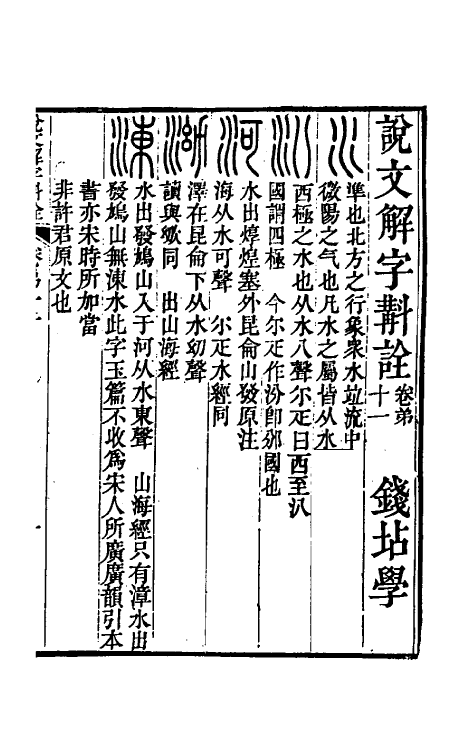 說文解字斠詮 卷弟十一 錢坫學
水 準也北方之行象衆水竝流中
微陽之气也凡水之屬皆从水
汃 西極之水也从水八聲尒疋曰西至汃
國謂四極 今尒疋作汾卽邠國也
河 水出焞煌塞外昆侖山發原注
海从水可聲 尒疋水經同
泑 澤在昆侖下从水幼聲
讀與㺒同 出山海經
涷 水出發鳩山入于河从水東聲 山海經只有漳水出
發鳩山無涷水此字玉篇不收爲宋人所廣廣韻引本
書亦宋時所加當
非許君原文也
一